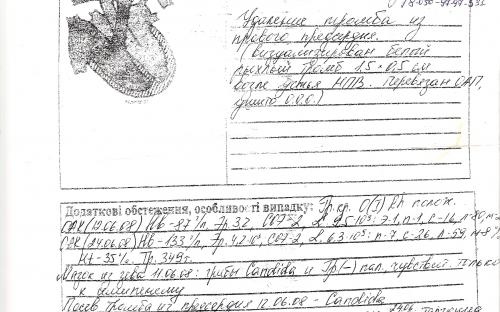 8-050-
Удаление тромба из
правого предсердия.
(визуализирован белый
рыхлый тромб 1,5×0,5 см
возле устья НПВ. Перевязан ОАП,
ушито О.О.О.)
Додаткові обстеження, особливості випадку: Гр. кр. O(I) Rh полож.
(19.06.08) Hb-87 г/л, Эр. 3,2, СОЭ-2, L 9,5·10³: Э-1, п-1, с-16, л-80, м-2
(24.06.08) Hb-133 г/л, СОЭ-2, L 6,3·10³: п-7, с-26, л-59, м-8%
Ht-35%, Тр. 349 т.
Мазок из зева 11.06.08: грибы Candida и Гр(-) пал. чувствит. только
к
Посев тромба из предсердия 12.06.08 - Candida